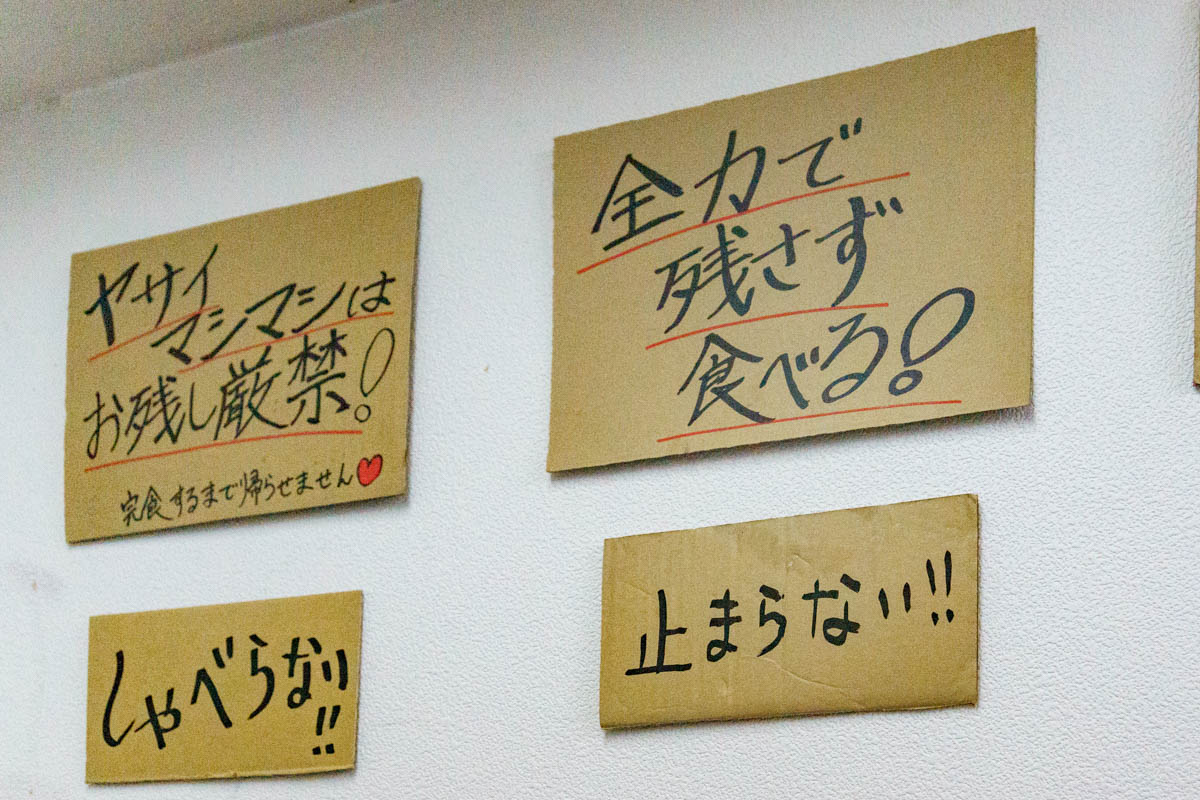 ヤサイ
マシマシは
お残し厳禁!
完食するまで帰らせません♥
全力で
残さず
食べる!
しゃべらない
!!
止まらない!!